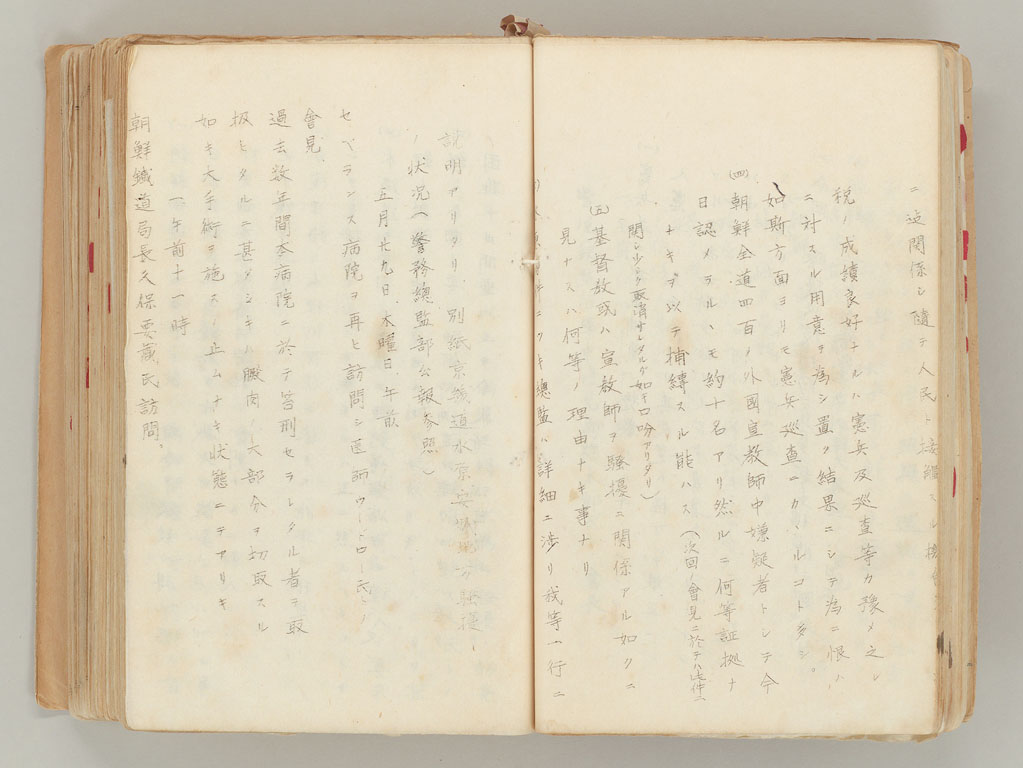 ニ随テ人民ト接觸スル
税ノ成績良好ナルハ憲兵及巡査等カ豫メ之レ
ニ対スル用意ヲ為シ置ク結果ニシテ為ニ恨ハ
如斯方面ヨリモ憲兵巡査ニカヽルコト多シ。
(四)朝鮮全道四百ノ外國宣教師中嫌疑者トシテ今
日認メラルヽモ約十名アリ然ルニ何等証拠ナ
ナキヲ以テ捕縛スル能ハス(次回ノ會見ニ於テハ此件ニ
関シ少シク取消サレタルガ如キ口吻アリタリ)
(五)基督教或ハ宣教師ヲ騒擾ニ関係アル如クニ
見ナスハ何等ノ理由ナキ事ナリ
ニツキ總監ハ詳細ニ渉リ我等一行ニ
説明アリタリ、別紙京畿道水原安城地方騒擾ノ
状況(警務總監部公報参照)
五月廿九日、木曜日、午前
セベランス病院ヲ再ヒ訪問シ医師
會見
過去数年間本病院ニ於テ笞刑セラレタル者ヲ取
扱ヒタルニ甚タシキハ臀肉ノ大部分ヲ切取スル
如キ大手術ヲ施スノ止ムナキ状態ニテアリキ
午前十一時
朝鮮鐵道局長久保要蔵氏訪問。